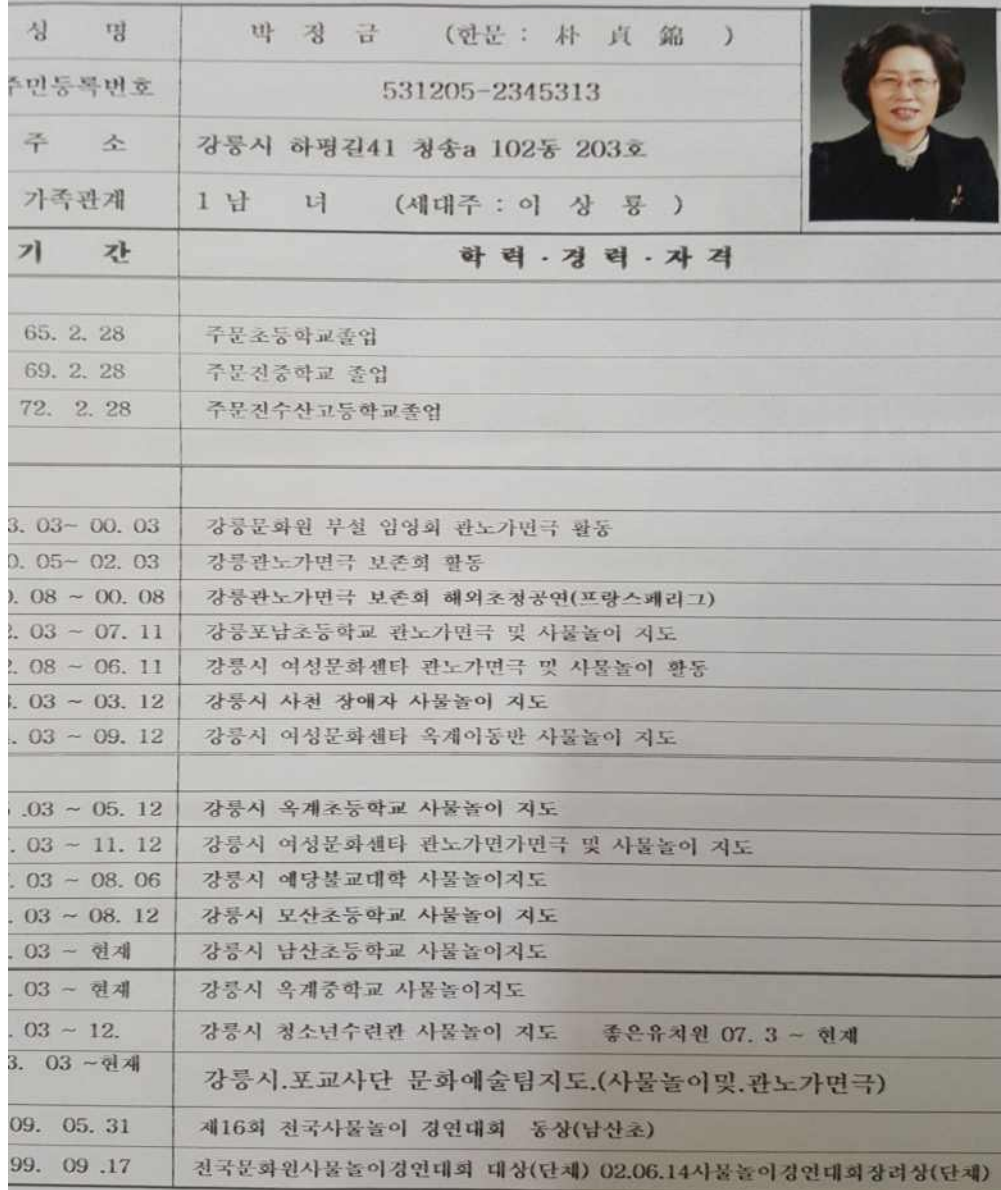 성 명 박 정 금 (한문 : 朴 貞 錦 )
주민등록번호 531205-2345313
주 소 강릉시 하평길41 청송a 102동 203호
가족관계 1 남 녀 (세대주 : 이 상 룡 )
기 간 학 력 · 경 력 · 자 격
65. 2. 28 주문초등학교졸업
69. 2. 28 주문진중학교 졸업
72. 2. 28 주문진수산고등학교졸업
3. 03~ 00. 03 강릉문화원 부설 임영회 관노가면극 활동
0. 05~ 02. 03 강릉관노가면극 보존회 활동
0. 08 ~ 00. 08 강릉관노가면극 보존회 해외초청공연(프랑스페리그)
2. 03 ~ 07. 11 강릉포남초등학교 관노가면극 및 사물놀이 지도
2. 08 ~ 06. 11 강릉시 여성문화센타 관노가면극 및 사물놀이 활동
3. 03 ~ 03. 12 강릉시 사천 장애자 사물놀이 지도
. 03 ~ 09. 12 강릉시 여성문화센타 옥계이동반 사물놀이 지도
.03 ~ 05. 12 강릉시 옥계초등학교 사물놀이 지도
. 03 ~ 11. 12 강릉시 여성문화센타 관노가면가면극 및 사물놀이 지도
. 03 ~ 08. 06 강릉시 예당불교대학 사물놀이지도
. 03 ~ 08. 12 강릉시 모산초등학교 사물놀이 지도
. 03 ~ 현재 강릉시 남산초등학교 사물놀이지도
. 03 ~ 현재 강릉시 옥계중학교 사물놀이지도
. 03 ~ 12. 강릉시 청소년수련관 사물놀이 지도 좋은유치원 07. 3 ~ 현재
3. 03 ~현재 강릉시.포교사단 문화예술팀지도.(사물놀이및.관노가면극)
09. 05. 31 제16회 전국사물놀이 경연대회 동상(남산초)
99. 09 .17 전국문화원사물놀이경연대회 대상(단체) 02.06.14사물놀이경연대회장려상(단체)